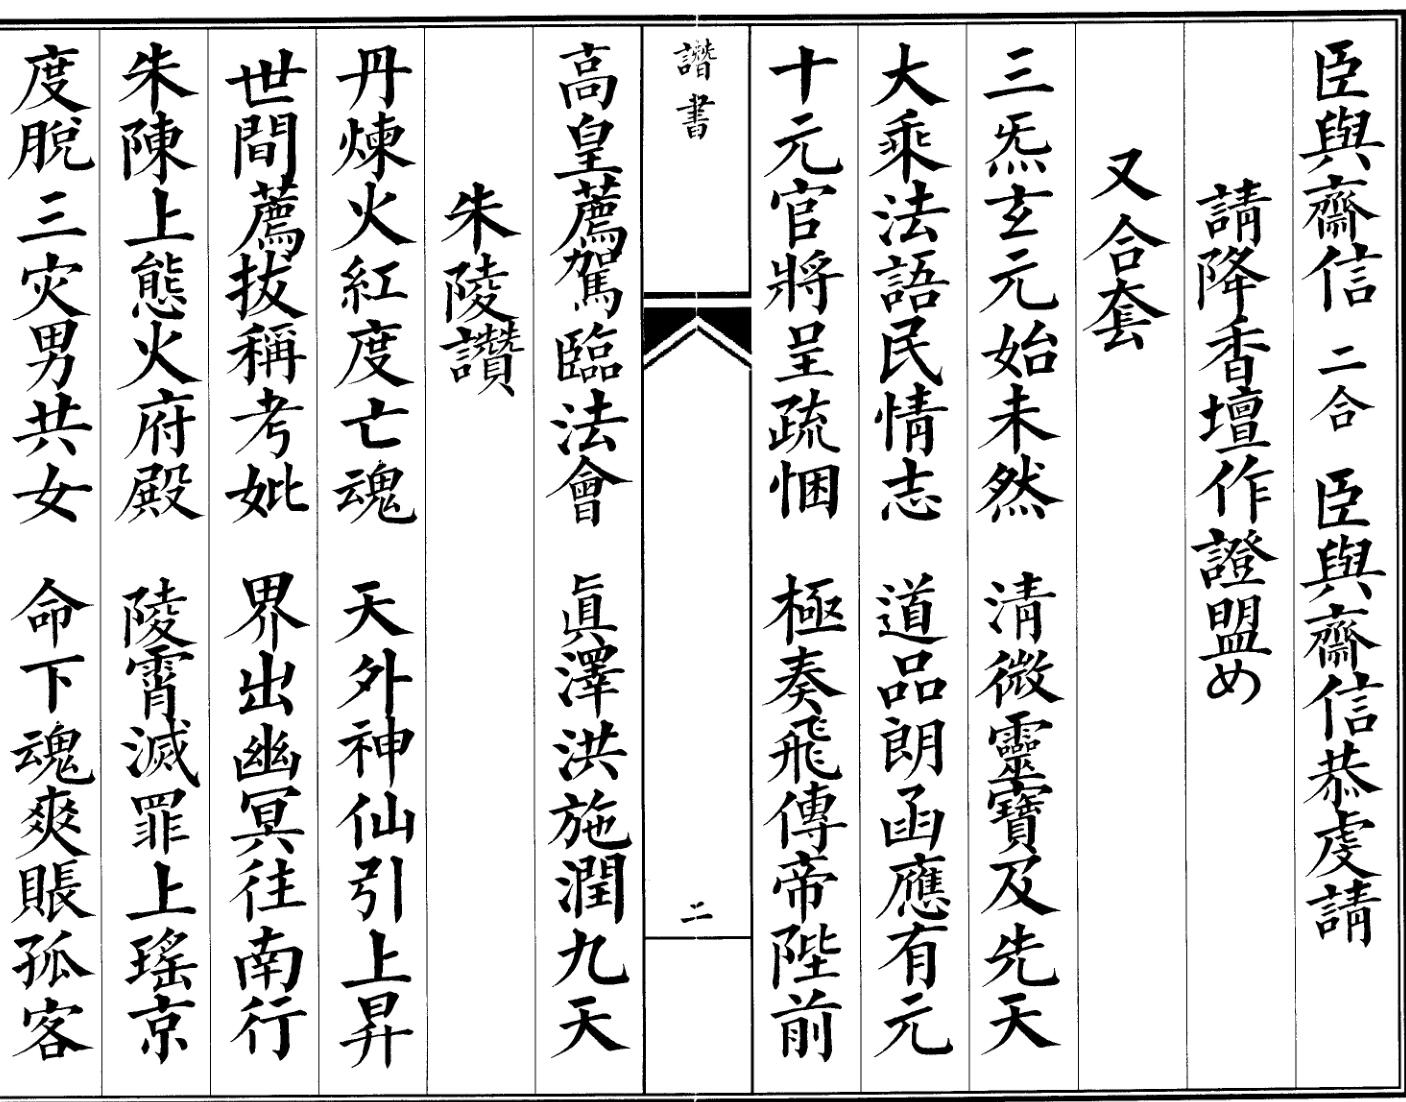 臣與齋信 二合 臣與齋信恭虔請
請降香壇作證盟め
又合套
三炁玄元始未然 清微靈寶及先天
大乘法語民情志 道品朗函應有元
十元官將呈疏悃 極奏飛傳帝陛前
譖書
二
高皇薦駕臨法會 眞澤洪施潤九天
朱陵讚
丹煉火紅度亡魂 天外神仙引上昇
世間薦拔稱考妣 界出幽冥往南行
朱陳上態火府殿 陵霄滅罪上瑤京
度脫三灾男共女 命下魂爽賬孤客